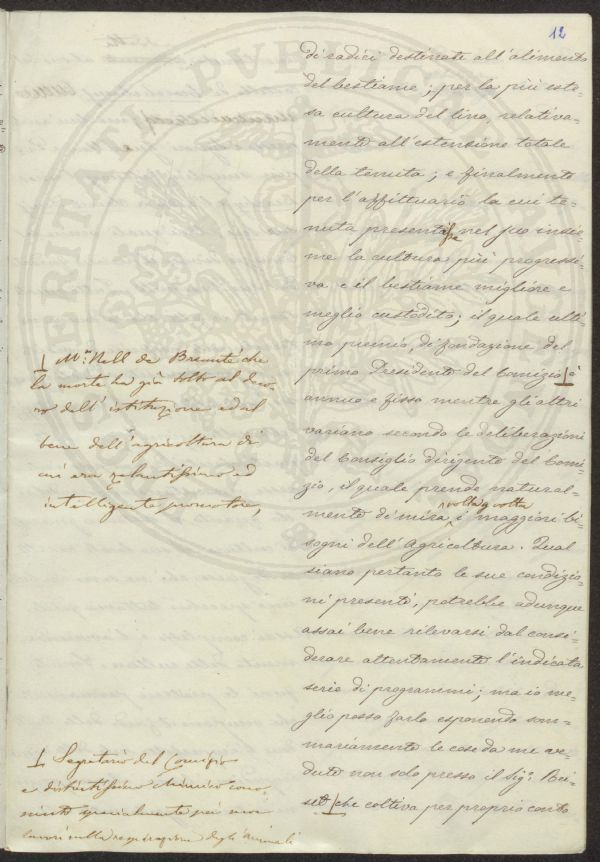 12
di radici destinate all'alimento
del bestiame; per la più este=
sa cultura del lino, relativa=
mente all'estensione totale
della tenuta; e finalmente
per l'affittuario la cui te=
nuta presenti nel suo insie=
me la cultura più progressi=
va e il bestiame migliore e
meglio custodito; il quale ulti=
mo premio, di fondazione del
primo Presidente del Comizio ⊥ è
annuo e fisso mentre gli altri
variano secondo le deliberazioni
del Consiglio dirigente del Comi=
zio, il quale prende natural=
mente di mira, volta a volta
i maggiori bi=
sogni dell'Agricoltura. Quali
siano pertanto le sue condizio=
ni presenti, potrebbe adunque
assai bene rilevarsi dal consi=
derare attentamente l'indicata
serie di programmi; ma io me=
glio posso farlo esponendo som=
mariamente le cose da me ve=
dute non solo presso il Sig.r Bai=
set ⊥ che coltiva per proprio conto
⊥ M.r Nell de Breauté che
la morte ha già tolto al deco=
ro dell'istituzione ed al
bene dell'agricoltura di
cui era zelantissimo ed
intelligente promotore,
⊥ Segretario del Comizio
e distintissimo chimico cono=
sciuto specialmente pei suoi
lavori sulla respirazione degli animali